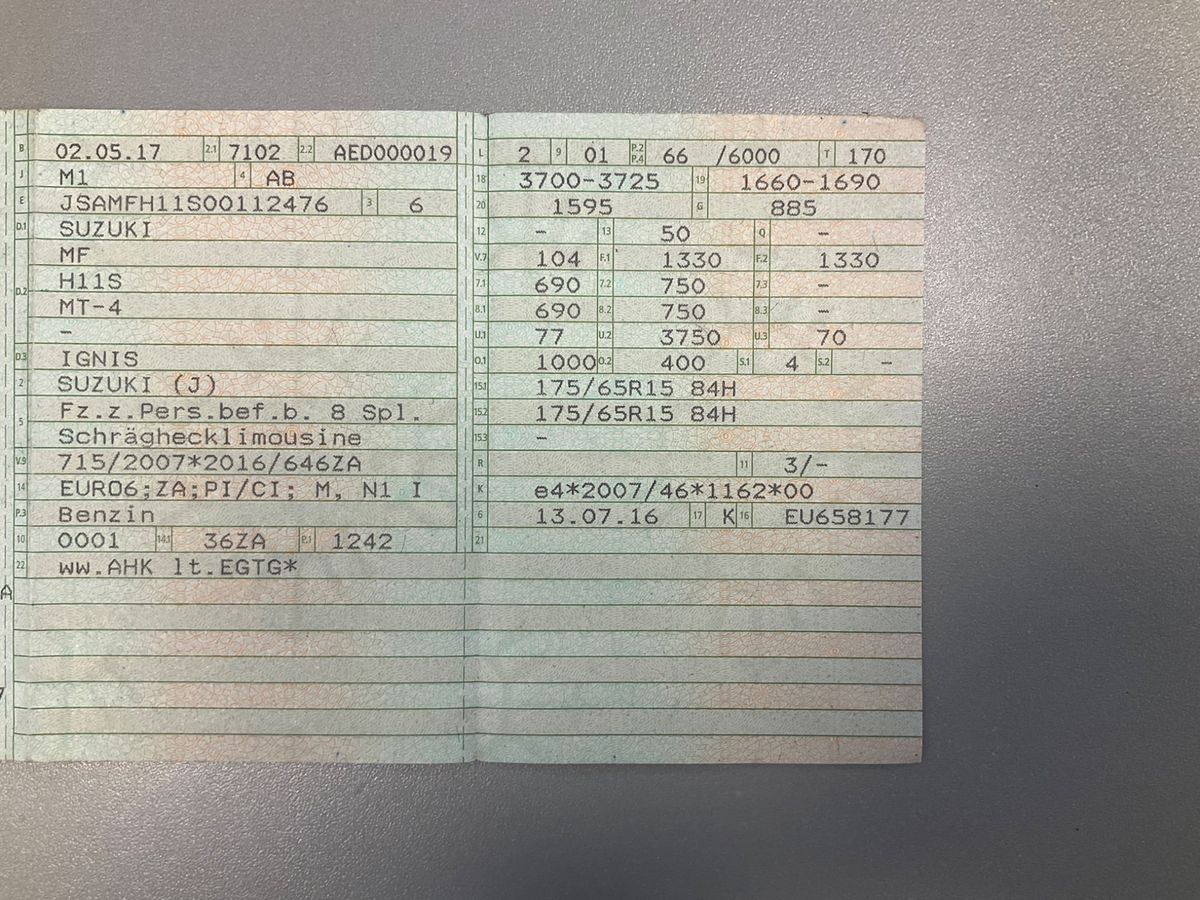 B 02.05.17 2.1 7102 2.2 AED000019
J M1 4 AB
E JSAMFH11S00112476 3 6
D.1 SUZUKI
MF
D.2 H11S
MT-4
-
D.3 IGNIS
2 SUZUKI (J)
5 Fz.z.Pers.bef.b. 8 Spl.
Schräghecklimousine
V.9 715/2007*2016/646ZA
14 EURO6;ZA;PI/CI; M, N1 I
P.3 Benzin
10 0001 14.1 36ZA P.1 1242
22 ww.AHK lt.EGTG*
A
7
L 2 9 01 P.2 P.4 66 /6000 T 170
18 3700-3725 19 1660-1690
20 1595 G 885
12 - 13 50 Q -
V.7 104 F.1 1330 F.2 1330
7.1 690 7.2 750 7.3 -
8.1 690 8.2 750 8.3 -
U.1 77 U.2 3750 U.3 70
O.1 1000 O.2 400 S.1 4 S.2 -
15.1 175/65R15 84H
15.2 175/65R15 84H
15.3 -
R 11 3/-
K e4*2007/46*1162*00
6 13.07.16 17 K 16 EU658177
21